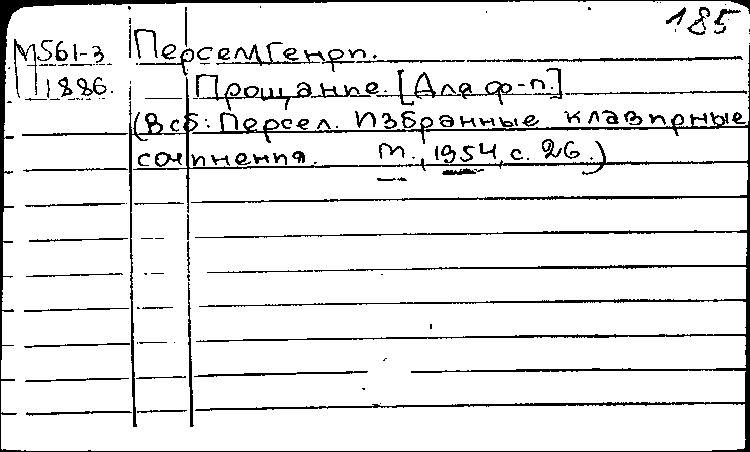 185
М561-3 Персел Генри.
1886. Прощание. [Для ф-п.]
(В сб: Персел. Избранные клавирные
сочинения. М., 1954, с. 26.)